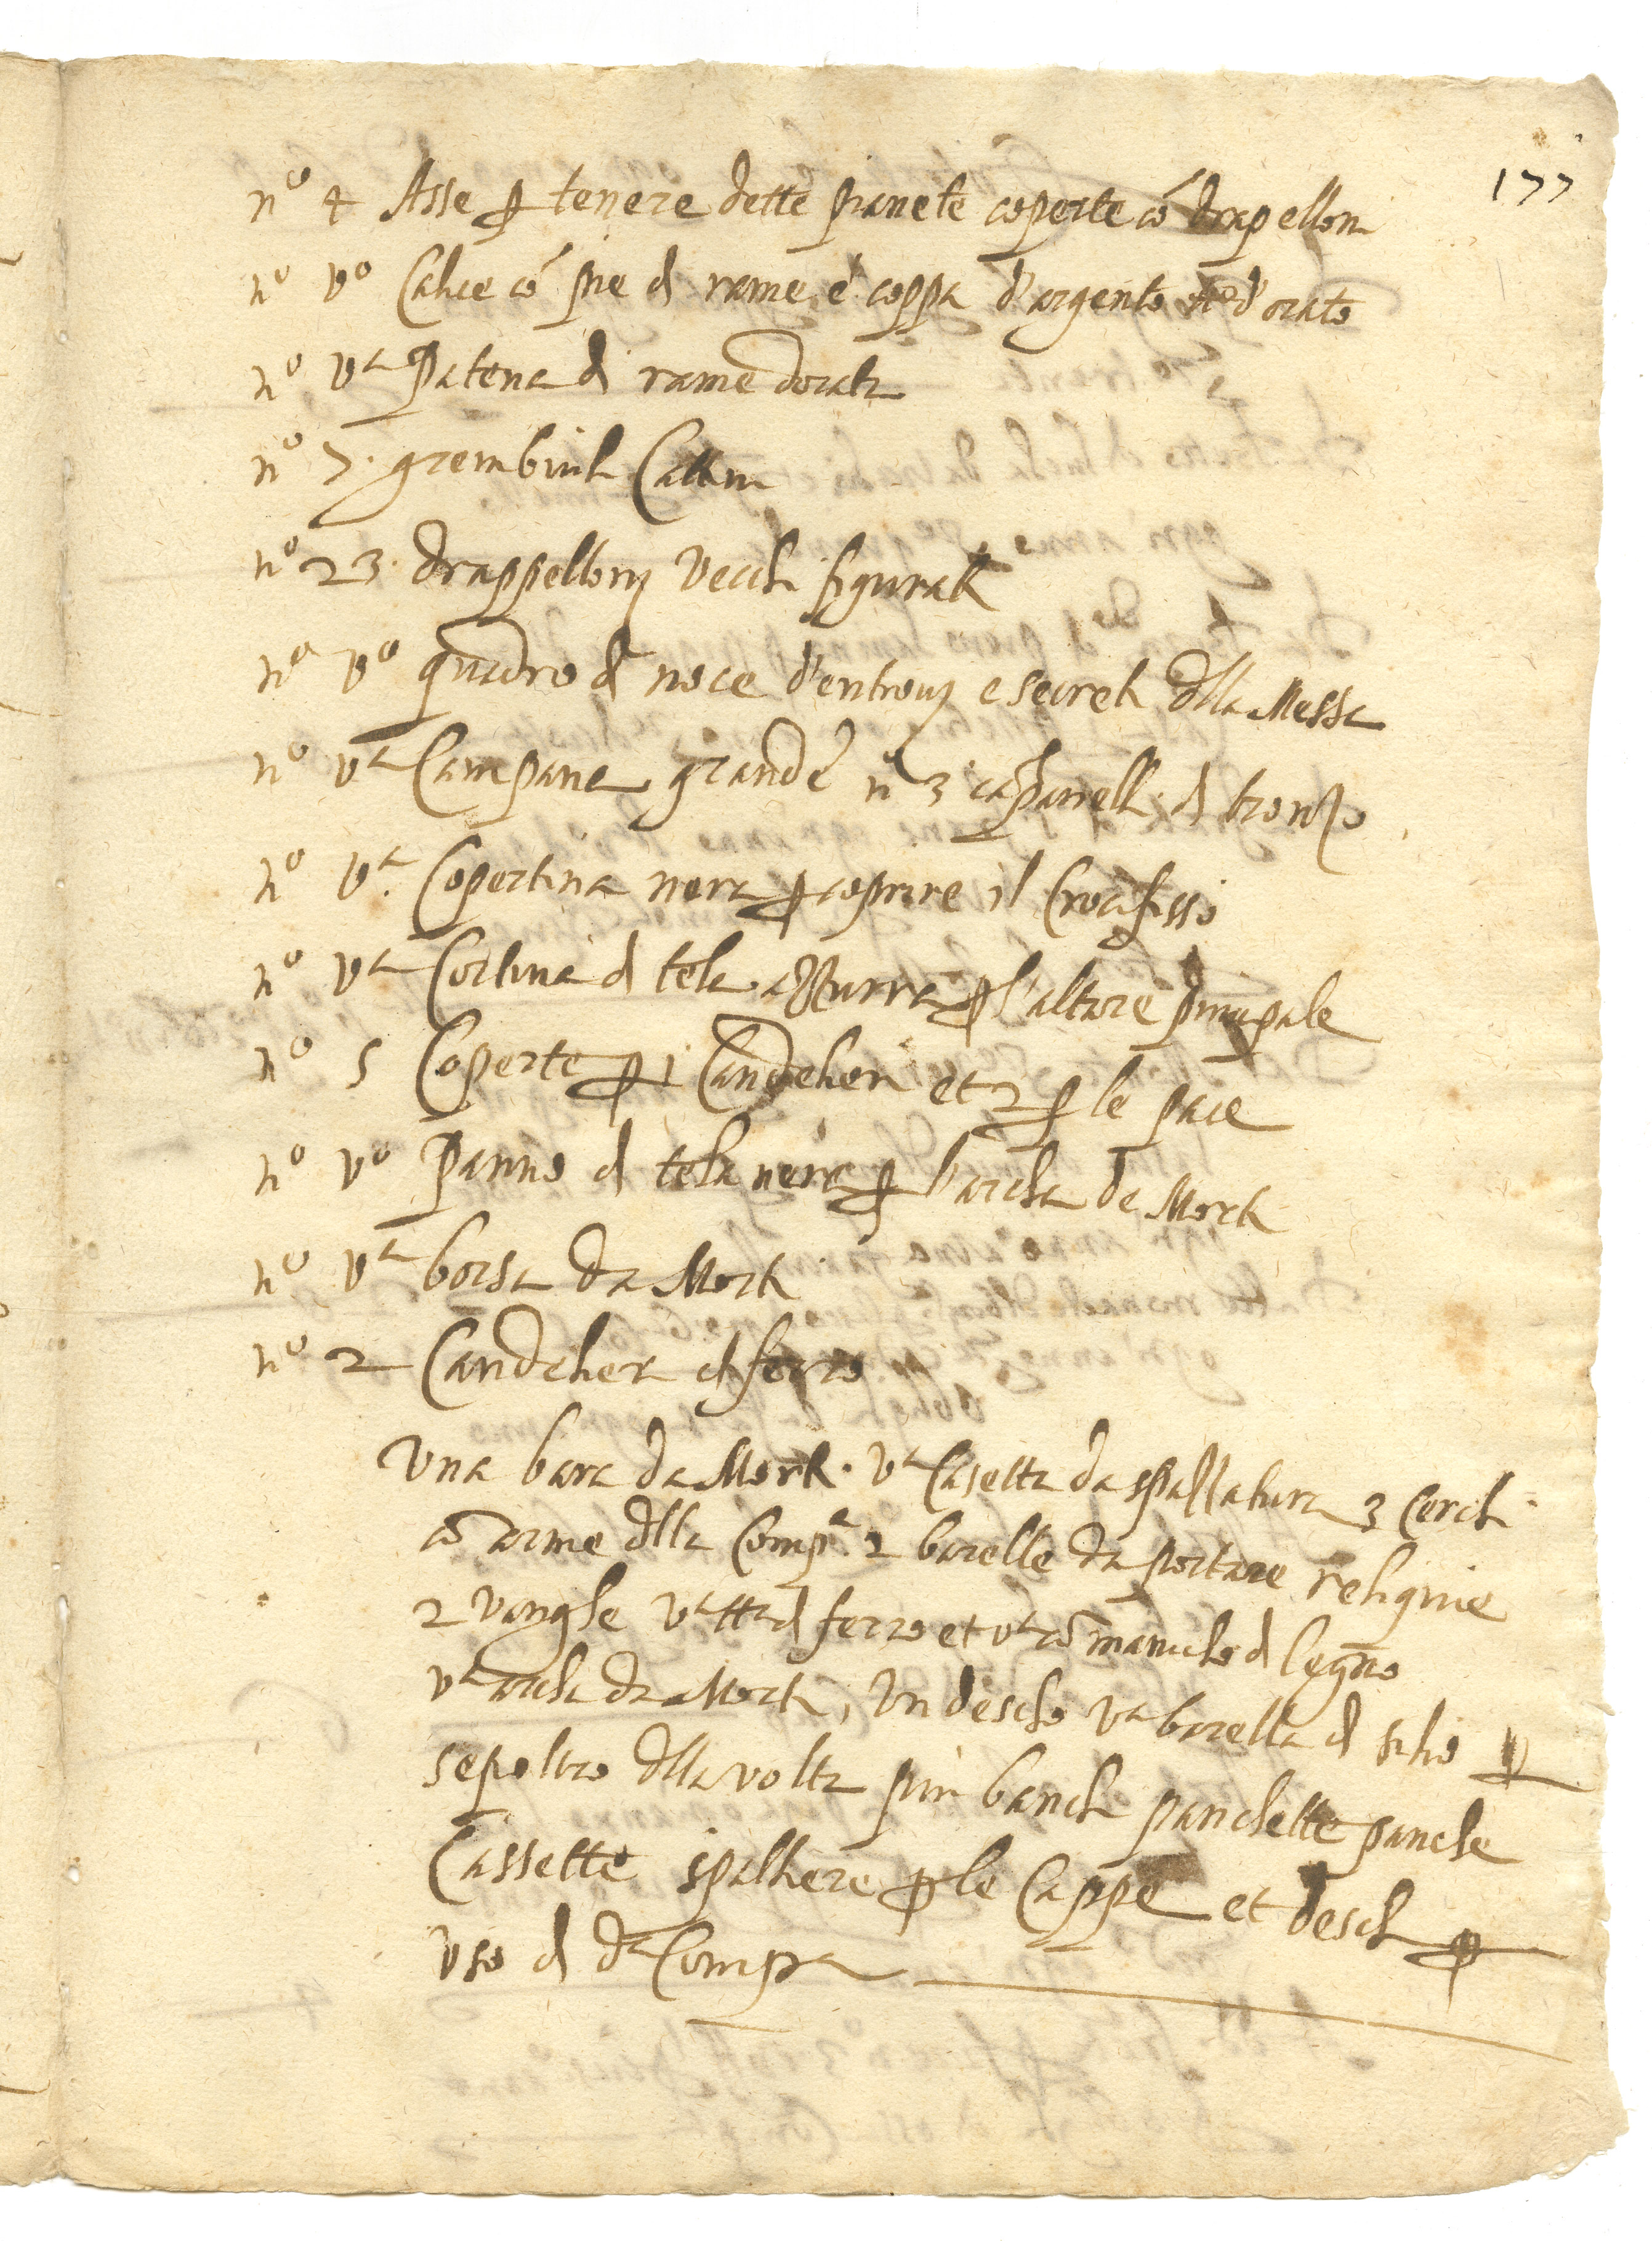 177
nº 4 Asse p tenere dette pianete coperte cõ drapelloni
nº vº Calice cõ pie di rame e coppa d'argento dorato
nº vª Patena di rame dorata
nº 7. grembiuli Cattivi
nº 23. drappelloni vecchi figurati
nº vº quadro di noce d'entrovi e secreti dlla Messa
nº vª Campana grande nº 3 cãpanelli di bronzo
nº vª Copertina nera p coprire il Crocifisso
nº vª Cortina di tela azzurra p l'altare principale
nº 5 Coperte p i Candelieri et 2 p le pace
nº vº Panno di tela nera p l'archa de Morti
nº vª borsa da Morti
nº 2 Candelieri di ferro
Una bara da Morti. vª Casetta da 3 Cerchi
cõ arme dlla Compª. 2 barelle da portare reliquie
2 vanghe vª ttª di ferro et vª cõ manicho di legno
vª archa da Morti, un descho vª barella di p
sepoltro dlla volta piu banchi panchette panche
Cassette spalliere p le Cappe et deschi p
uso di dª Compª